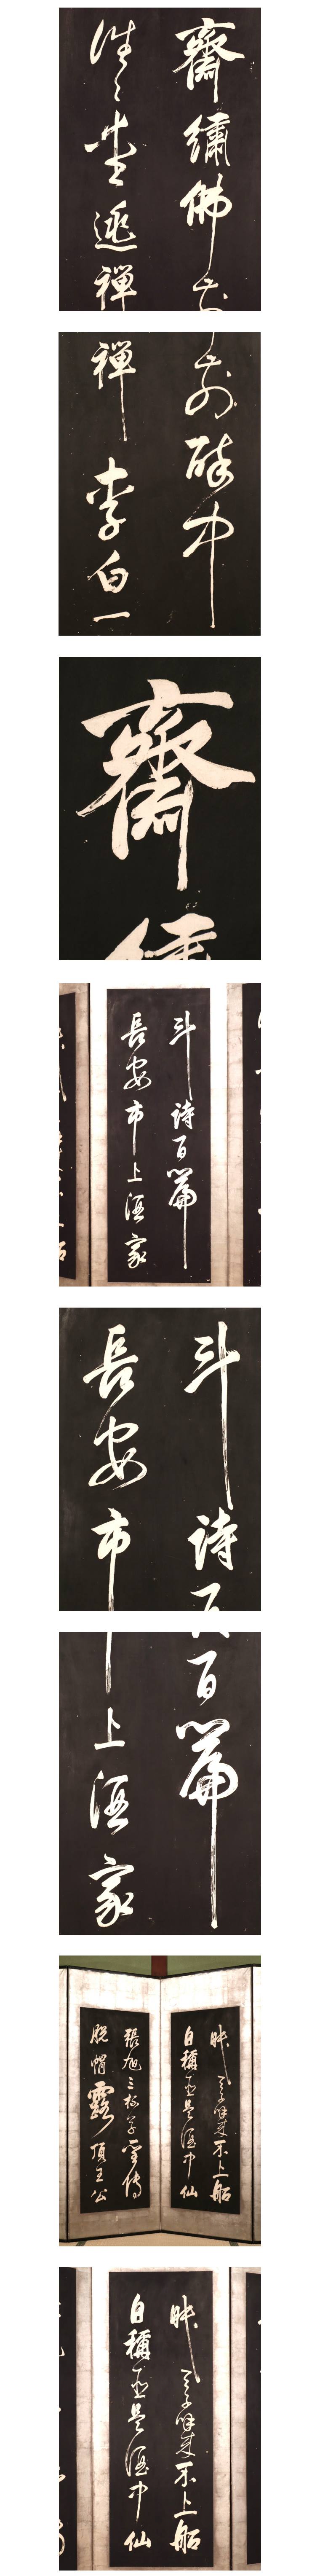 齋繡佛
往〻愛逃禪
前醉中
禪李白一
齋
斗詩百篇
長安市上酒家
斗詩百
長安市
百篇
上酒家
眠天子呼來不上船
自稱臣是酒中仙
張旭三杯草聖傳
脫帽露頂王公
眠天子呼來不上船
自稱臣是酒中仙